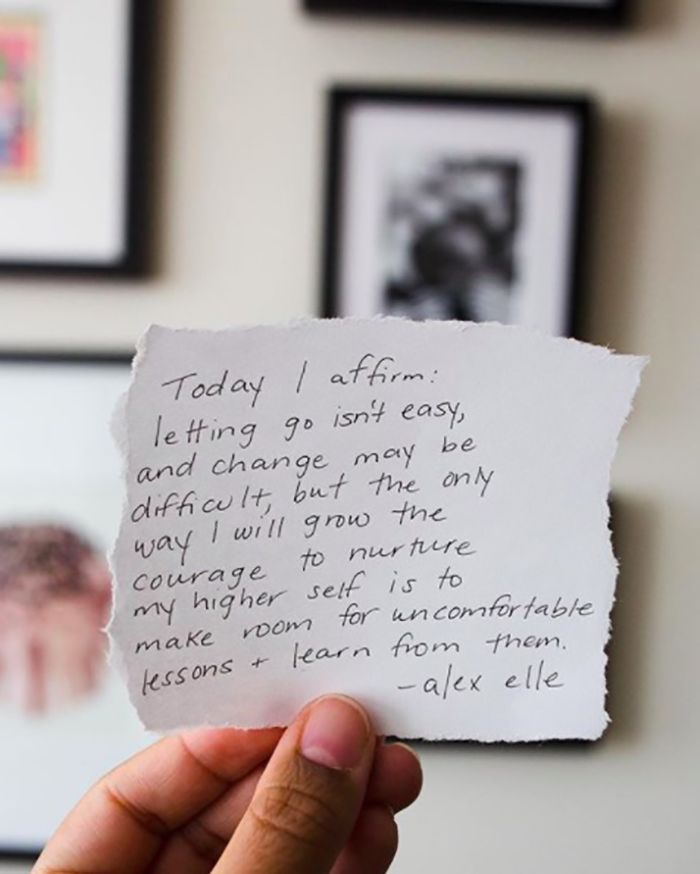 Today I affirm:
letting go isn't easy,
and change may be
difficult, but the only
way I will grow the
courage to nurture
my higher self is to
make room for uncomfortable
lessons + learn from them.
-alex elle